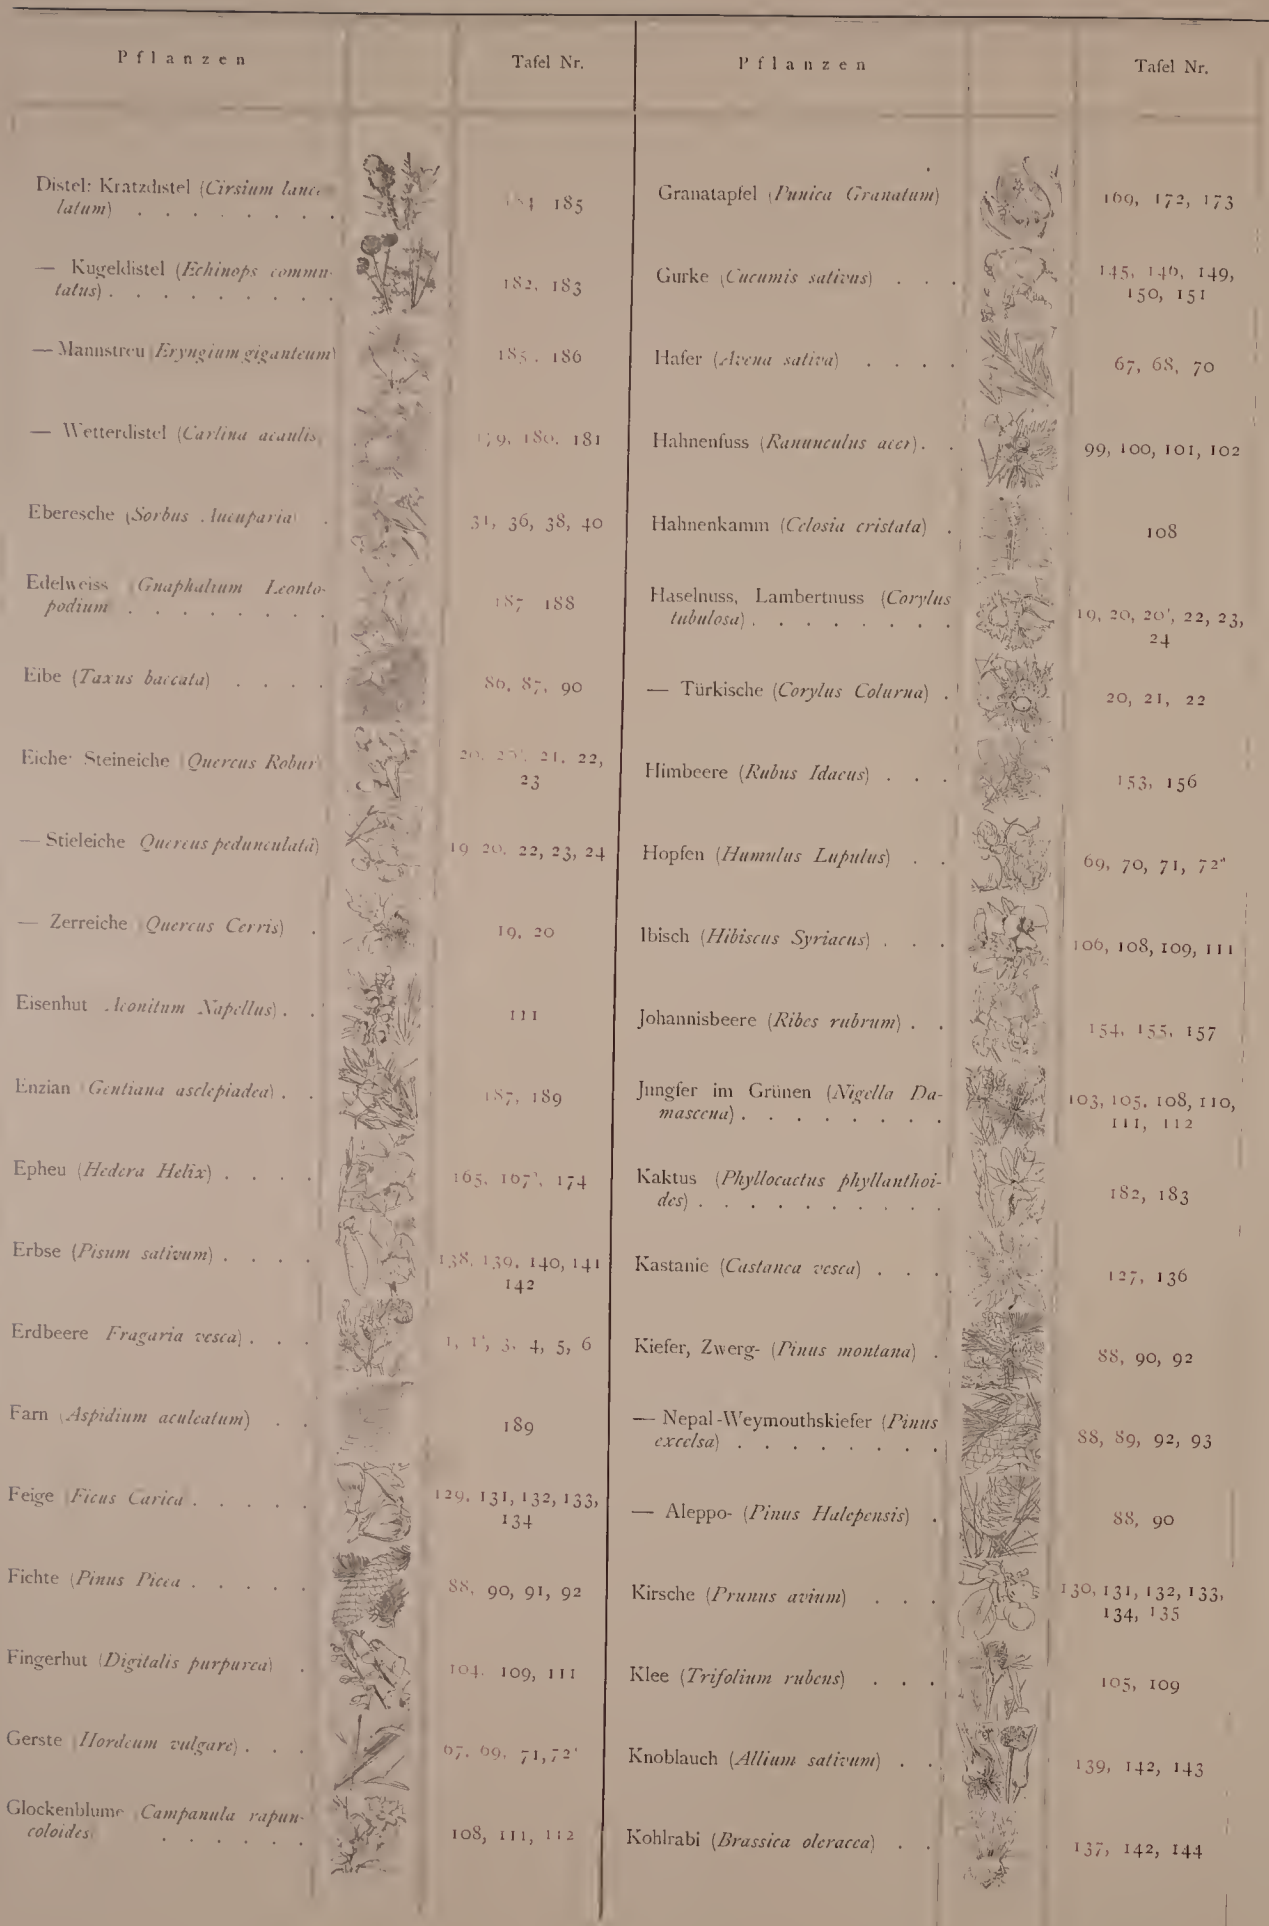 Pflanzen
Tafel Nr.
Distel: Kratzdistel (Cirsium lance
latum) . . . . . . . .
185
— Kugeldistel (Echinops commu-
tatus) . . . . . . . . .
182, 183
— Mannstreu (Eryngium giganteum)
185, 186
— Wetterdistel (Carlina acaulis
179, 180, 181
Eberesche (Sorbus Aucuparia) .
31, 36, 38, 40
Edelweiss (Gnaphalium Leonto-
podium . . . . . . . .
187 188
Eibe (Taxus baccata) . . . .
86, 87, 90
Eiche: Steineiche (Quercus Robur)
20, 20', 21, 22,
23
— Stieleiche Quercus pedunculata)
19 20, 22, 23, 24
— Zerreiche (Quercus Cerris) .
19, 20
Eisenhut Aconitum Napellus) . .
111
Enzian (Gentiana asclepiadea) . .
187, 189
Epheu (Hedera Helix) . . . .
165, 167', 174
Erbse (Pisum sativum) . . . .
138, 139, 140, 141
142
Erdbeere Fragaria vesca) . . .
1, 1', 3, 4, 5, 6
Farn (Aspidium aculeatum) . .
189
Feige (Ficus Carica . . . . .
129, 131, 132, 133,
134
Fichte (Pinus Picea . . . . .
88, 90, 91, 92
Fingerhut (Digitalis purpurea) .
104, 109, 111
Gerste (Hordeum vulgare) . . .
67, 69, 71, 72'
Glockenblume (Campanula rapun-
coloides) . . . . . .
108, 111, 112
Pflanzen
Tafel Nr.
Granatapfel (Punica Granatum)
169, 172, 173
Gurke (Cucumis sativus) . . .
145, 146, 149,
150, 151
Hafer (Avena sativa) . . . .
67, 68, 70
Hahnenfuss (Ranunculus acer) . .
99, 100, 101, 102
Hahnenkamm (Celosia cristata) .
108
Haselnuss, Lambertnuss (Corylus
tubulosa) . . . . . . . .
19, 20, 20', 22, 23,
24
— Türkische (Corylus Colurna) .
20, 21, 22
Himbeere (Rubus Idaeus) . . .
153, 156
Hopfen (Humulus Lupulus) . .
69, 70, 71, 72'
Ibisch (Hibiscus Syriacus) . . .
106, 108, 109, 111
Johannisbeere (Ribes rubrum) . .
154, 155, 157
Jungfer im Grünen (Nigella Da-
mascena) . . . . . . . .
103, 105, 108, 110,
111, 112
Kaktus (Phyllocactus phyllanthoi-
des) . . . . . . . . . .
182, 183
Kastanie (Castanea vesca) . . .
127, 136
Kiefer, Zwerg- (Pinus montana) .
88, 90, 92
— Nepal-Weymouthskiefer (Pinus
excelsa) . . . . . . . .
88, 89, 92, 93
— Aleppo- (Pinus Halepensis) .
88, 90
Kirsche (Prunus avium) . . .
130, 131, 132, 133,
134, 135
Klee (Trifolium rubens) . . .
105, 109
Knoblauch (Allium sativum) . .
139, 142, 143
Kohlrabi (Brassica oleracea) . .
137, 142, 144